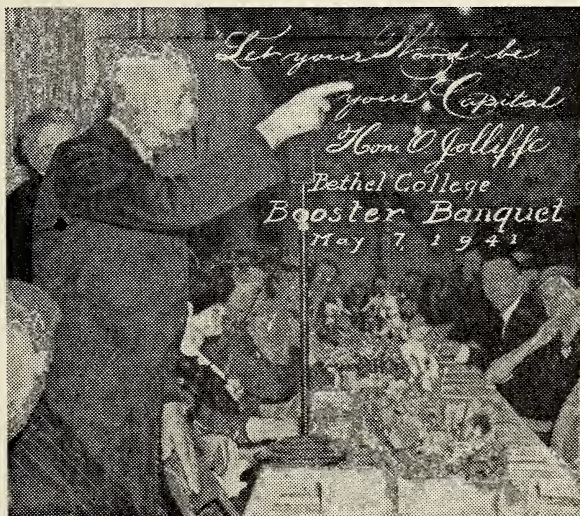 "Let your Word be
your Capital
Hon. O Jolliffe
Bethel College
Booster Banquet
May 7, 1941